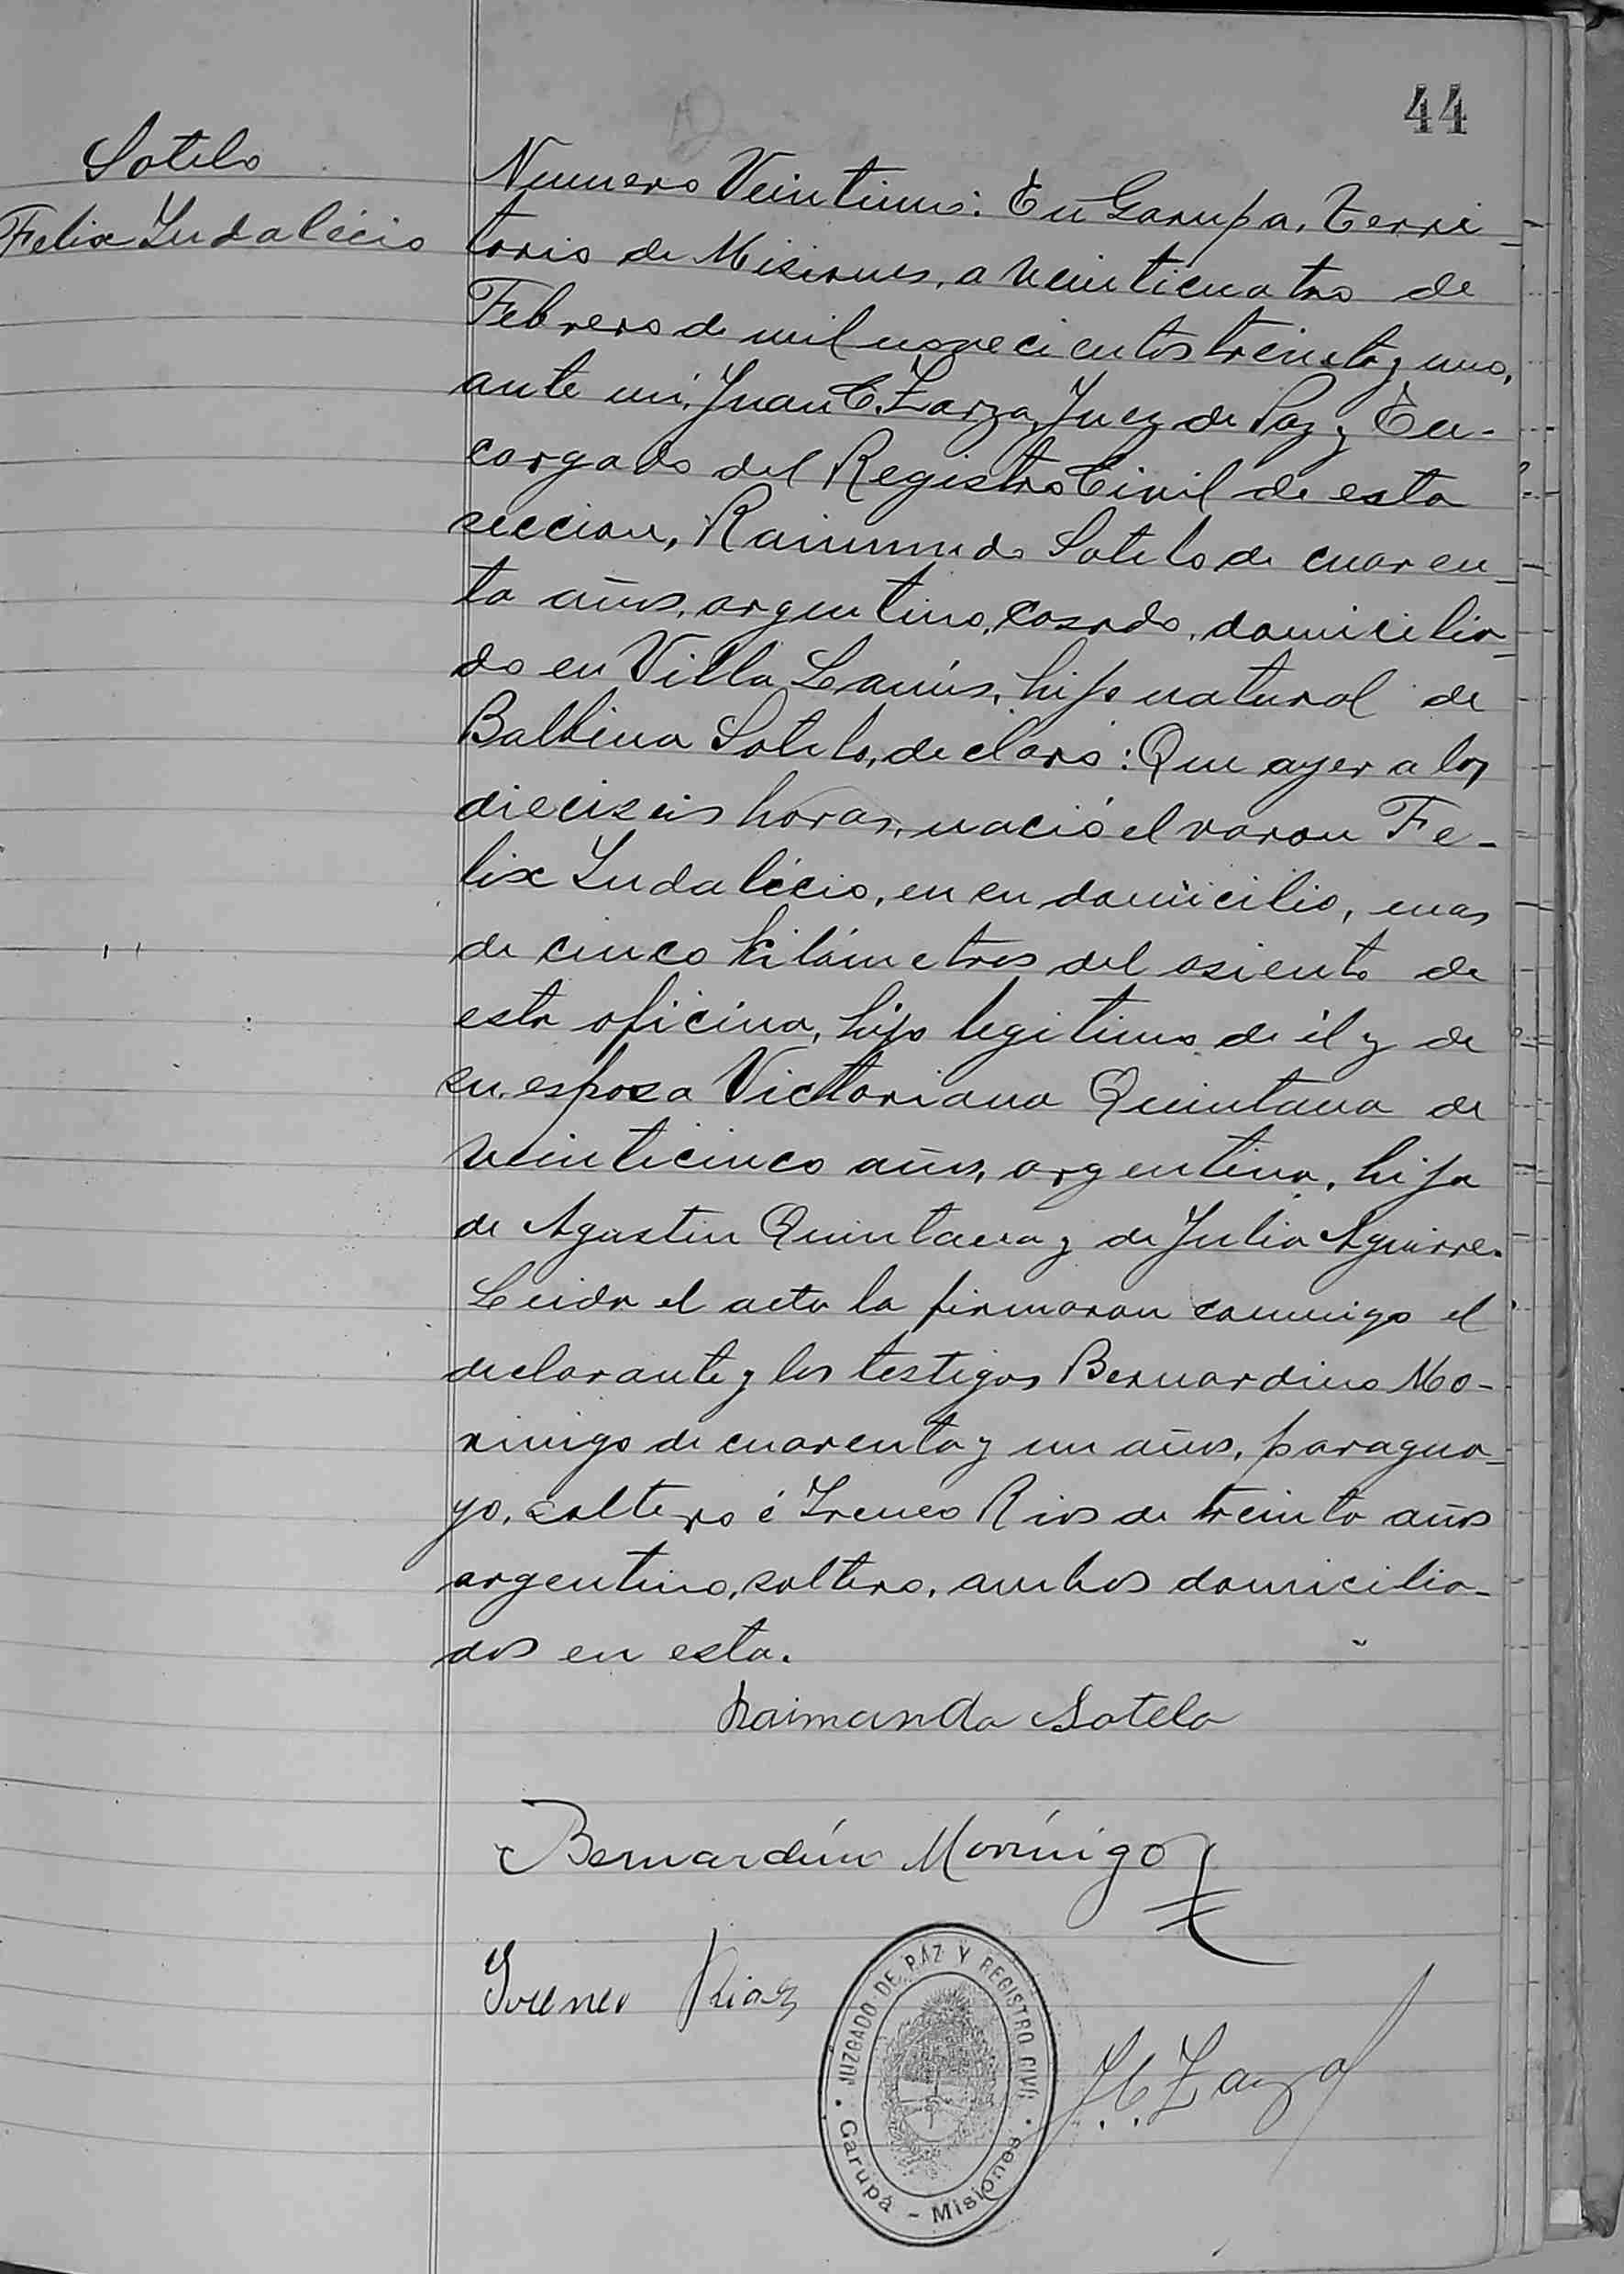 44
Sotelo
Felix Indalécio
Numero Veintiuno: En Garupa, Terri-
torio de Misiones, a veinticuatro de
Febrero de mil novecientos treinta y uno,
ante mi, Juan C. Zarza, Juez de Paz y En-
cargado del Registro Civil de esta
seccion, Raimundo Sotelo de cuaren-
ta años, argentino, casado, domicilia-
do en Villa Lanús, hijo natural de
Balbina Sotelo, declaró: Que ayer a las
dieciseis horas, nació el varon Fe-
lix Indalécio, en su domicilio, mas
de cinco kilómetros del asiento de
esta oficina, hijo legitimo de él y de
su esposa Victoriana Quintana de
veinticinco años, argentina, hija
de Agustin Quintana y de Julia Aguirre.
Leida el acta la firmaron conmigo el
declarante y los testigos Bernardino Mo-
rinigo de cuarenta y un años, paragua-
yo, soltero é Ireneo Rios de treinta años
argentino, soltero, ambos domicilia-
dos en esta.
Raimundo Sotelo
Bernardino Morínigo
Ireneo Rios
J. C. Zarza
JUZGADO DE PAZ Y REGISTRO CIVIL
Garupá - Misiones